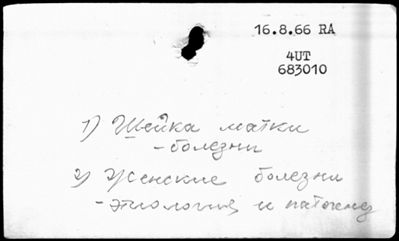 16.8.66 RA
4UT
683010
1) Шейка матки
- болезни
2) Женские болезни
- этиология и патогенез